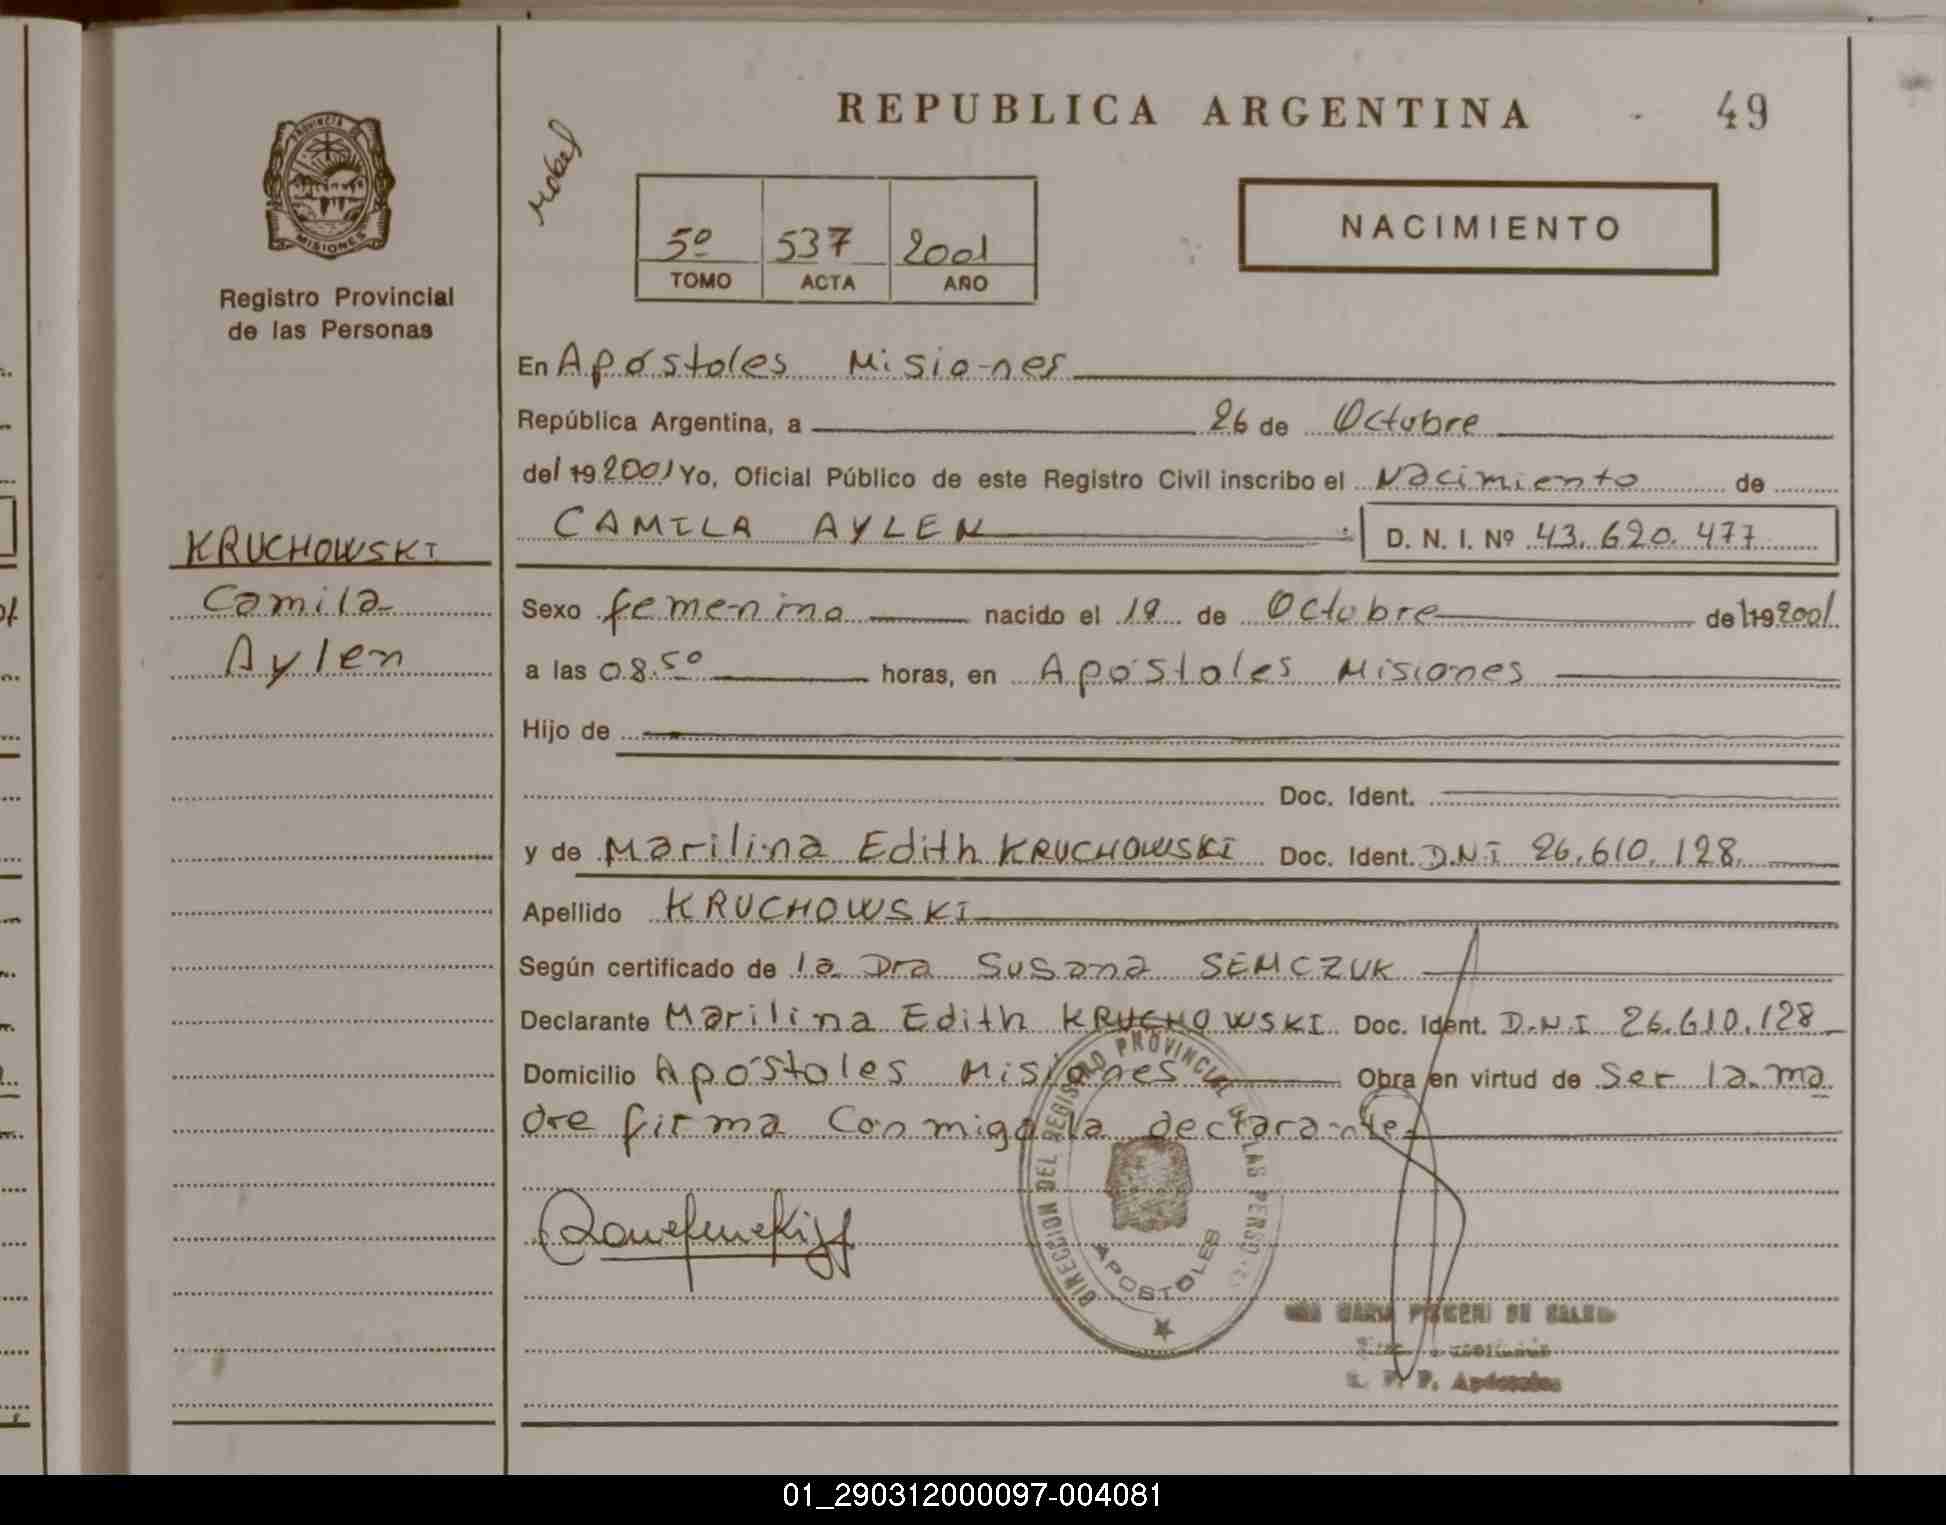 REPUBLICA ARGENTINA
49
PROVINCIA DE
MISIONES
Registro Provincial
de las Personas
5º 537 2001
TOMO ACTA AÑO
NACIMIENTO
En Apóstoles Misiones
República Argentina, a 26 de Octubre
del 19 2001 Yo, Oficial Público de este Registro Civil inscribo el Nacimiento de
CAMILA AYLEN D. N. I. Nº 43.620.477
KRUCHOWSKI
Camila
Aylen
Sexo femenino nacido el 18 de Octubre de 19 2001
a las 08.50 horas, en Apóstoles Misiones
Hijo de
Doc. Ident.
y de Marilina Edith KRUCHOWSKI Doc. Ident. D.N.I 26.610.128
Apellido KRUCHOWSKI
Según certificado de la Dra Susana SEMCZUK
Declarante Marilina Edith KRUCHOWSKI Doc. Ident. D.N.I 26.610.128
Domicilio Apóstoles Misiones Obra en virtud de Ser la ma
dre firma Conmigo la declarante
DIRECCION DEL REGISTRO PROVINCIAL LAS PERSO
APOSTOLES
MARIA DE
P. Apóstoles
01_290312000097-004081